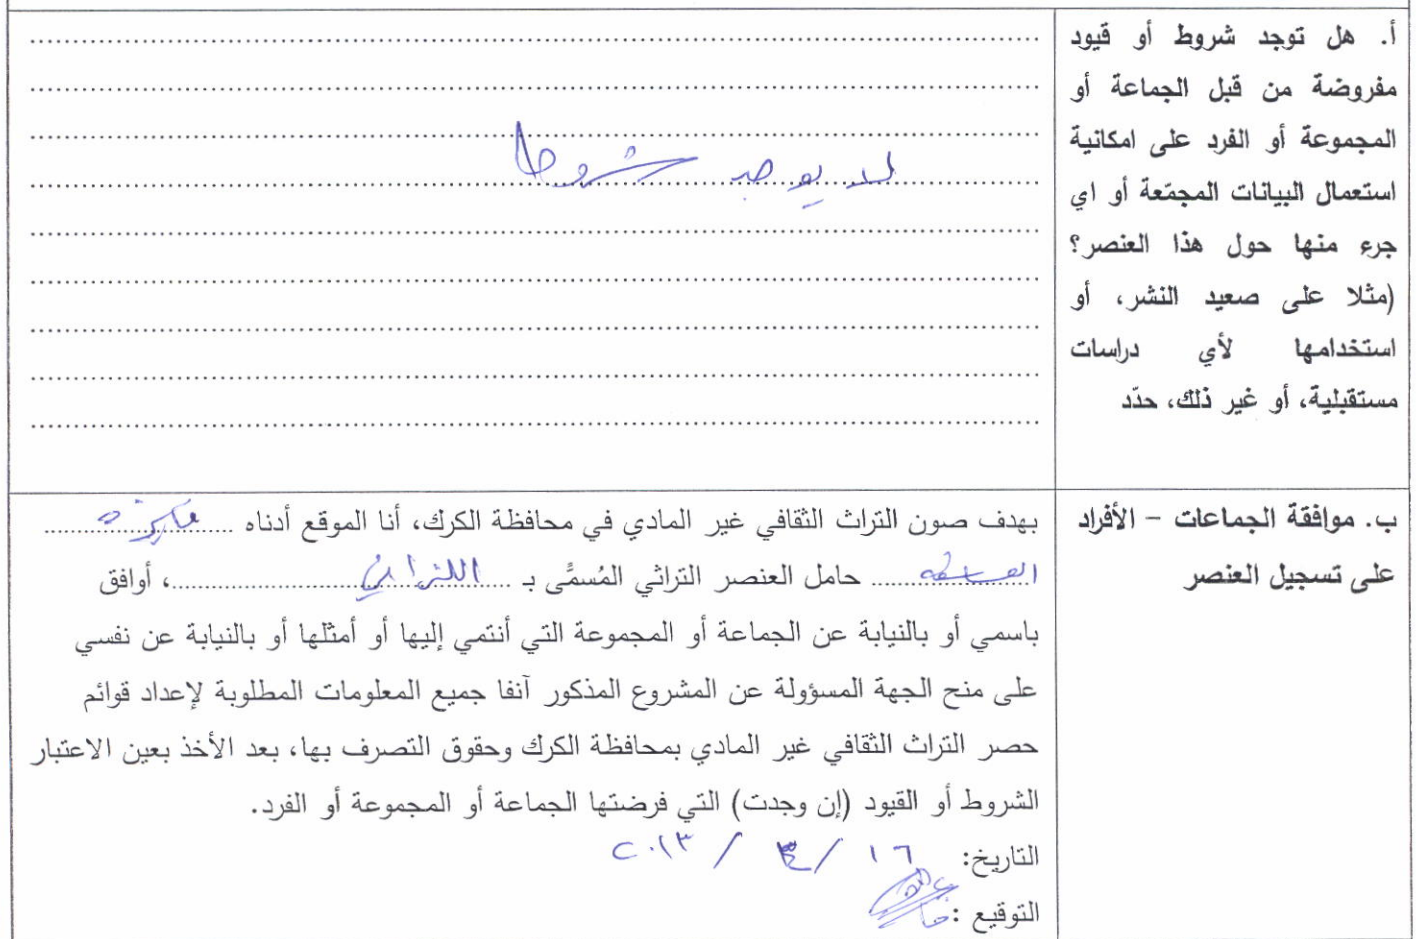 أ. هل توجد شروط أو قيود
مفروضة من قبل الجماعة أو
المجموعة أو الفرد على امكانية
استعمال البيانات المجمّعة أو اي
جرء منها حول هذا العنصر؟
(مثلا على صعيد النشر، أو
استخدامها لأي دراسات
مستقبلية، أو غير ذلك، حدّد
لا يوجد شروط
ب. موافقة الجماعات – الأفراد
على تسجيل العنصر
بهدف صون التراث الثقافي غير المادي في محافظة الكرك، أنا الموقع أدناه
حامل العنصر التراثي المُسمًّى بـ ، أوافق
باسمي أو بالنيابة عن الجماعة أو المجموعة التي أنتمي إليها أو أمثلها أو بالنيابة عن نفسي
على منح الجهة المسؤولة عن المشروع المذكور آنفا جميع المعلومات المطلوبة لإعداد قوائم
حصر التراث الثقافي غير المادي بمحافظة الكرك وحقوق التصرف بها، بعد الأخذ بعين الاعتبار
الشروط أو القيود (إن وجدت) التي فرضتها الجماعة أو المجموعة أو الفرد.
التاريخ: ١٦ / / ٢٠١٣
التوقيع :